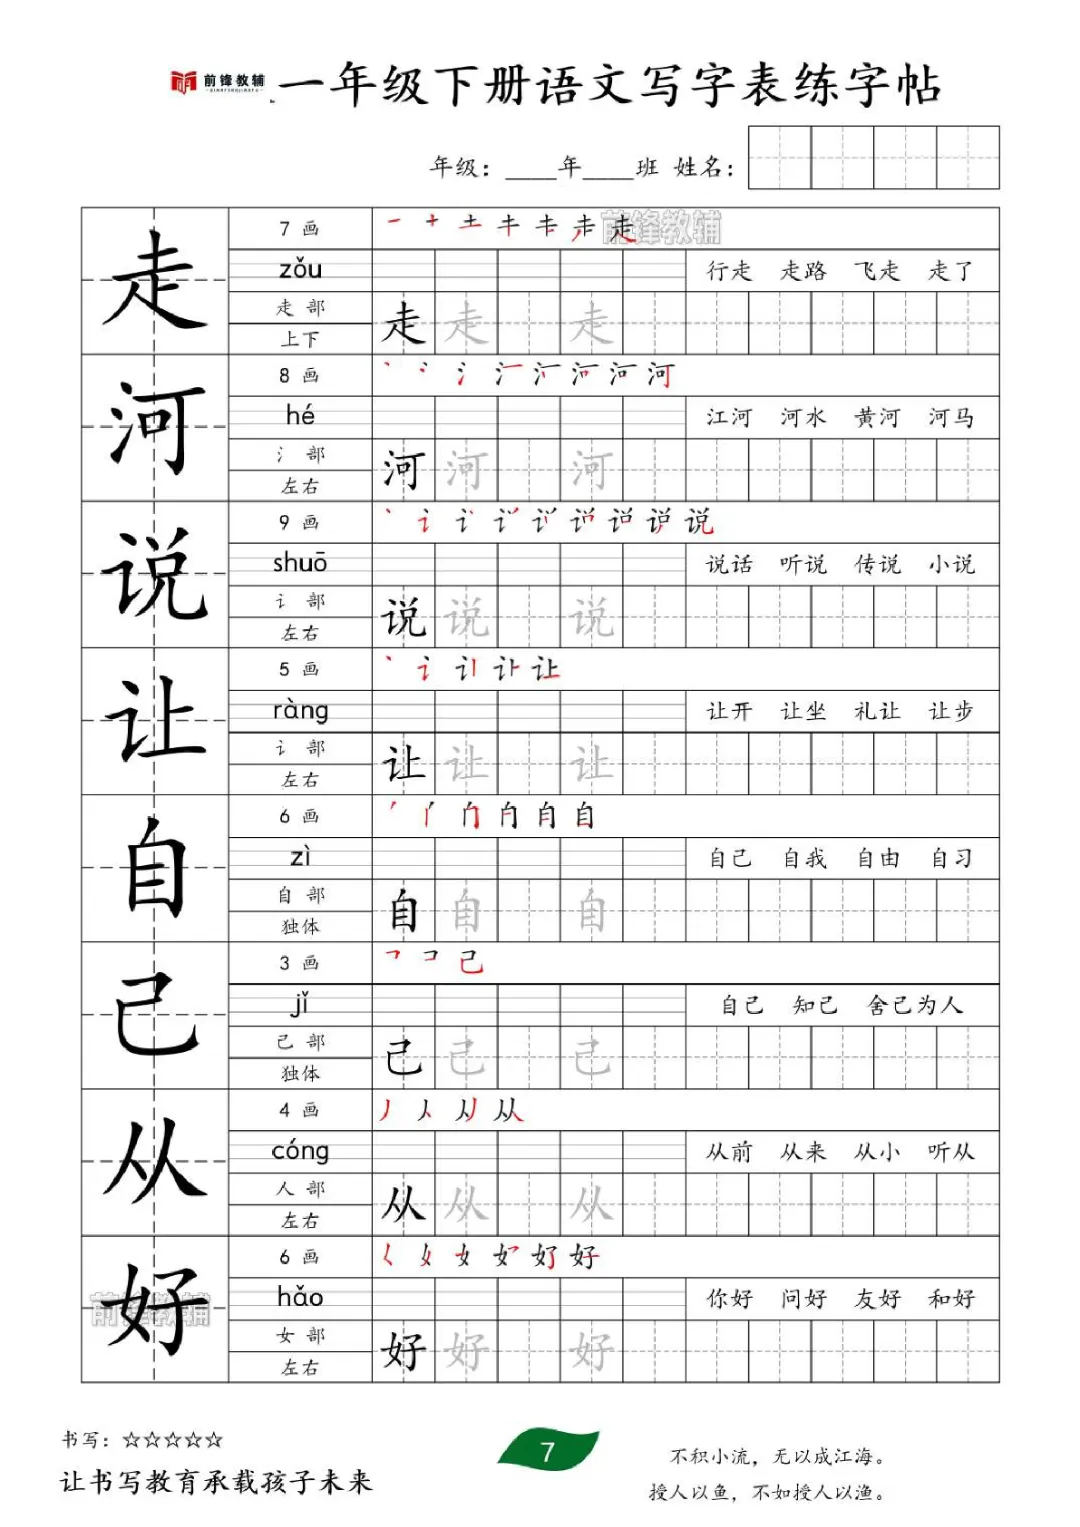 前锋教辅 一年级下册语文写字表练字帖
年级：____年____班 姓名：
走 7 画
zǒu 行走 走路 飞走 走了
走 部 走 走 走
上下
河 8 画
hé 江河 河水 黄河 河马
氵 部 河 河 河
左右
说 9 画
shuō 说话 听说 传说 小说
讠 部 说 说 说
左右
让 5 画
ràng 让开 让坐 礼让 让步
讠 部 让 让 让
左右
自 6 画
zì 自己 自我 自由 自习
自 部 自 自 自
独体
己 3 画
jǐ 自己 知己 舍己为人
己 部 己 己 己
独体
从 4 画
cóng 从前 从来 从小 听从
人 部 从 从 从
左右
好 6 画
hǎo 你好 问好 友好 和好
女 部 好 好 好
左右
书写：☆☆☆☆☆
让书写教育承载孩子未来
7
不积小流，无以成江海。
授人以鱼，不如授人以渔。